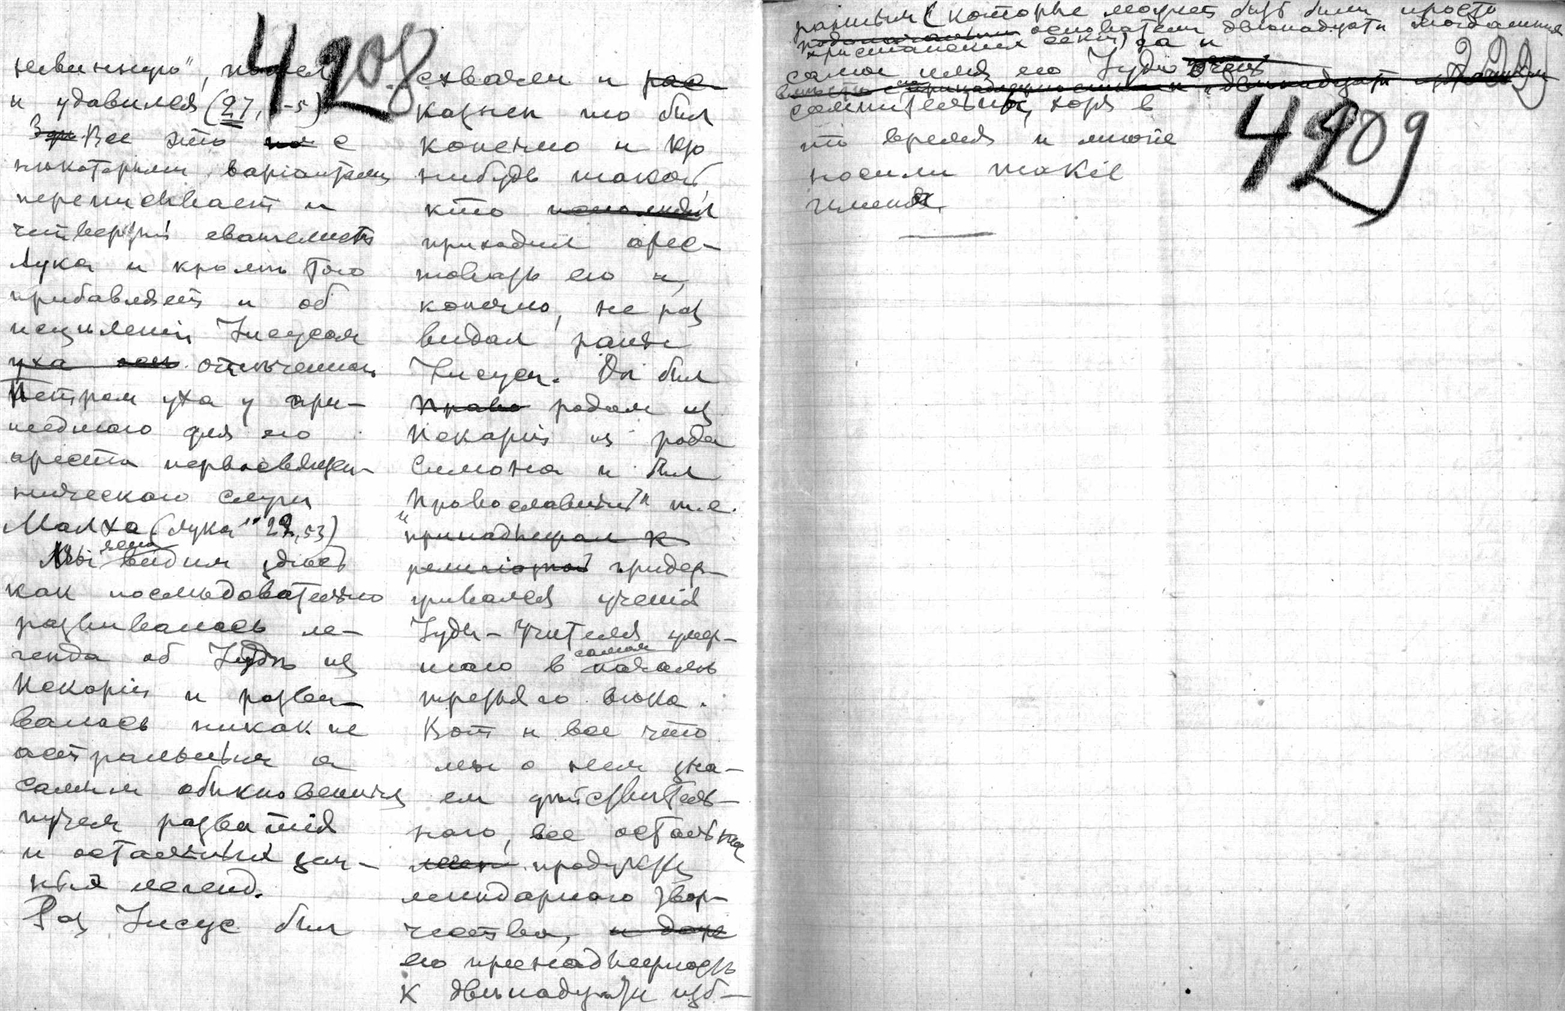 4208
невинную", пошел
и удавился (27, -5)
Все это с
некоторыми варіантами
переписывает и
четвертый евангелист
Лука и кромѣ того
прибавляет и об
исцѣленіи Іисусом
уха отсѣченнаго
Петром уха у при-
шедшаго для его
ареста первосвящен-
ническаго слуги
Малха (Лука" 22, 53)
Мы ясно видим здѣсь
как послѣдовательно
развивалась ле-
генда об Іудѣ из
Искаріи и разви-
валась никак не
астральным а
самым обыкновенным
путем развитія
и остальных зем-
ных легенд.
Раз Іисус был
схвачен и
казнен то был
конечно и кто
нибудь такой,
кто
приходил арес-
товать его и,
конечно, не раз
видал раньше
Іисуса. Он был
родом из
Искаріи из рода
Симона и был
"Православный" т.е.
принадлежал к
религіозной придер-
живался ученія
Іуды-Учителя умер-
шаго в самом началѣ
третьяго вѣка.
Вот и все что
мы о нем зна-
ем дѣйствитель-
наго, все остальное
продукты
легендарного твор-
чества,
его принадлежность
к двѣнадцати изб-
ранным (которые может быть были просто
основатели двѣнадцати тогдашних
христианских сект) да и
самое имя его Іуда
сомнительны, хотя в
то время и многіе
носили такіе
имена.
229
4209